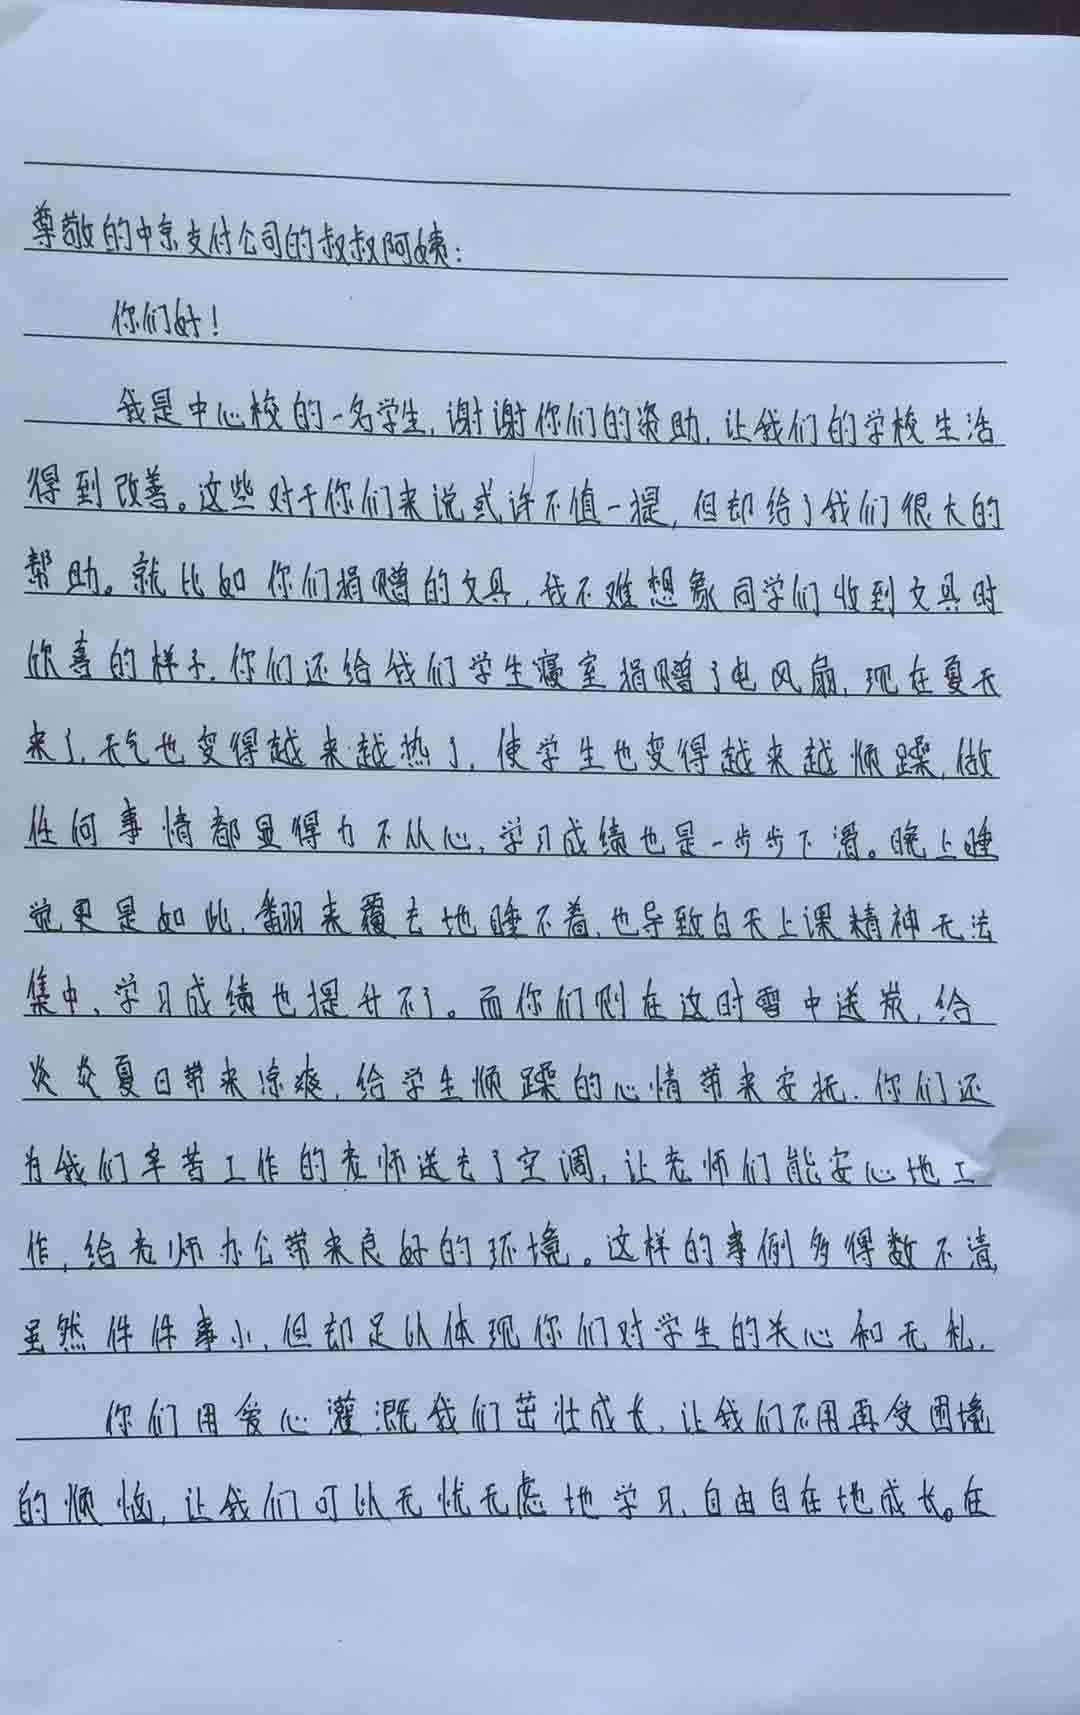 尊敬的中京支付公司的叔叔阿姨:
你们好!
我是中心校的一名学生,谢谢你们的资助,让我们的学校生活
得到改善。这些对于你们来说或许不值一提,但却给了我们很大的
帮助。就比如你们捐赠的文具,我不难想象同学们收到文具时
欣喜的样子.你们还给我们学生寝室捐赠了电风扇,现在夏天
来了,天气也变得越来越热了,使学生也变得越来越烦躁,做
任何事情都显得力不从心,学习成绩也是一步步下滑。晚上睡
觉更是如此,翻来覆去地睡不着,也导致白天上课精神无法
集中、学习成绩也提升不了。而你们则在这时雪中送炭,给
炎炎夏日带来凉爽,给学生烦躁的心情带来安抚.你们还
为我们辛苦工作的老师送去了空调,让老师们能安心地工
作,给老师办公带来良好的环境。这样的事例多得数不清,
虽然件件事小,但却足以体现你们对学生的关心和无私.
你们用爱心灌溉我们茁壮成长,让我们不用再受困境
的烦恼,让我们可以无忧无虑地学习,自由自在地成长。在